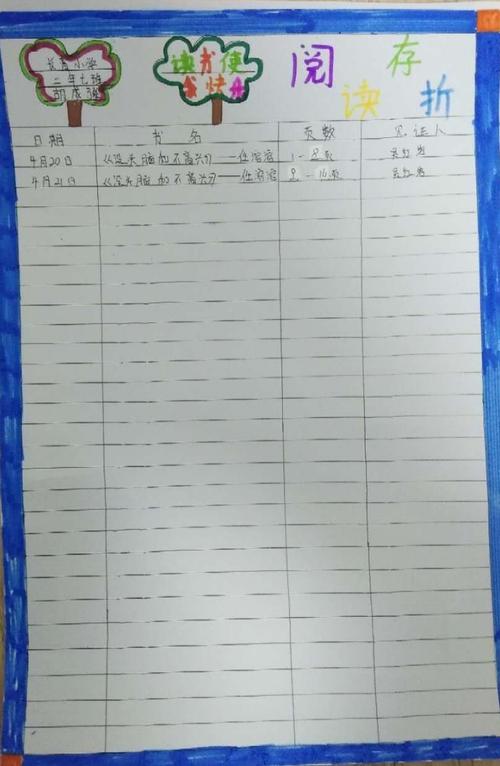 长青小学
二年七班
读书使
我快乐
阅读存折
日期 书名 页数 见证人
4月20日 《没头脑和不高兴》——任溶溶 1-8页
4月21日 《没头脑和不高兴》——任溶溶 9-16页